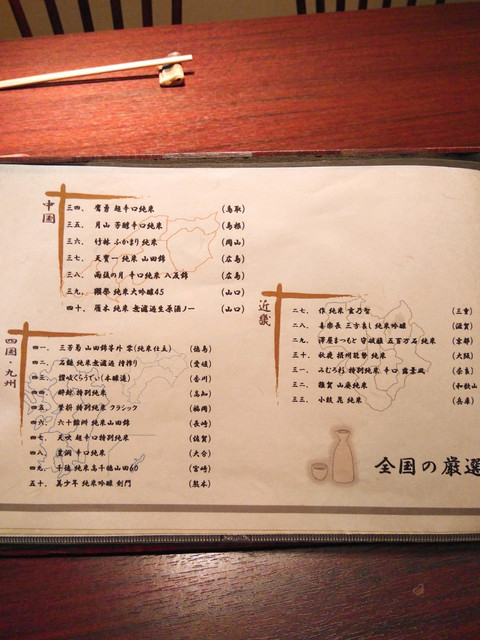 中国
三四、鷹勇 超辛口純米 (鳥取)
三五、月山 芳醇辛口純米 (島根)
三六、竹林 ふかまり 純米 (岡山)
三七、天寶一 純米 山田錦 (広島)
三八、雨後の月 辛口純米 八反錦 (広島)
三九、獺祭 純米大吟醸45 (山口)
四十、雁木 純米 無濾過生原酒ノ一 (山口)
近畿
二七、作 純米 玄乃智 (三重)
二八、喜楽長 三方よし 純米吟醸 (滋賀)
二九、澤屋まつもと 守破離 五百万石 純米 (京都)
三十、秋鹿 摂州能勢 純米 (大阪)
三一、みむろ杉 特別純米 辛口 露葉風 (奈良)
三二、雑賀 山廃純米 (和歌山
三三、小鼓 純米 (兵庫)
四国・九州
四一、三芳菊 山田錦等外 雫(純米仕立) (徳島)
四二、石鎚 純米無濾過 槽搾り (愛媛)
四三、讃岐くらうでぃ(本醸造) (香川)
四四、酔鯨 特別純米 (高知)
四五、繁桝 特別純米 クラシック (福岡)
四六、六十餘洲 純米山田錦 (長崎)
四七、天吹 超辛口特別純米 (佐賀)
四八、鷹来屋 辛口純米 (大分)
四九、千徳 純米高千穂山田60 (宮崎)
五十、美少年 純米吟醸 剣門 (熊本)
全国の厳選